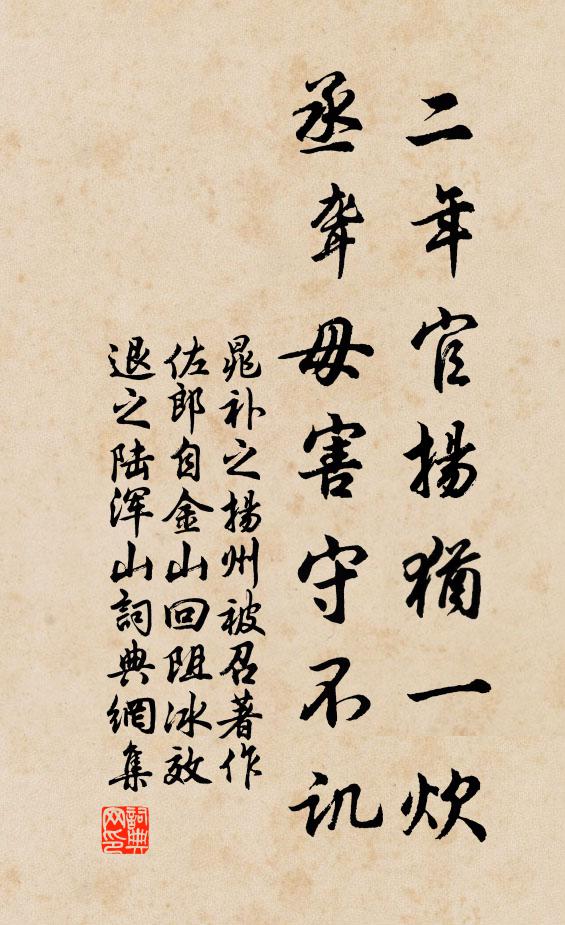 二年官揚猶一炊
丞聋毋害守不讥
晁补之揚州被召著作
佐郎自金山回阻冰效
退之陆浑山詞典網集
詞典网印